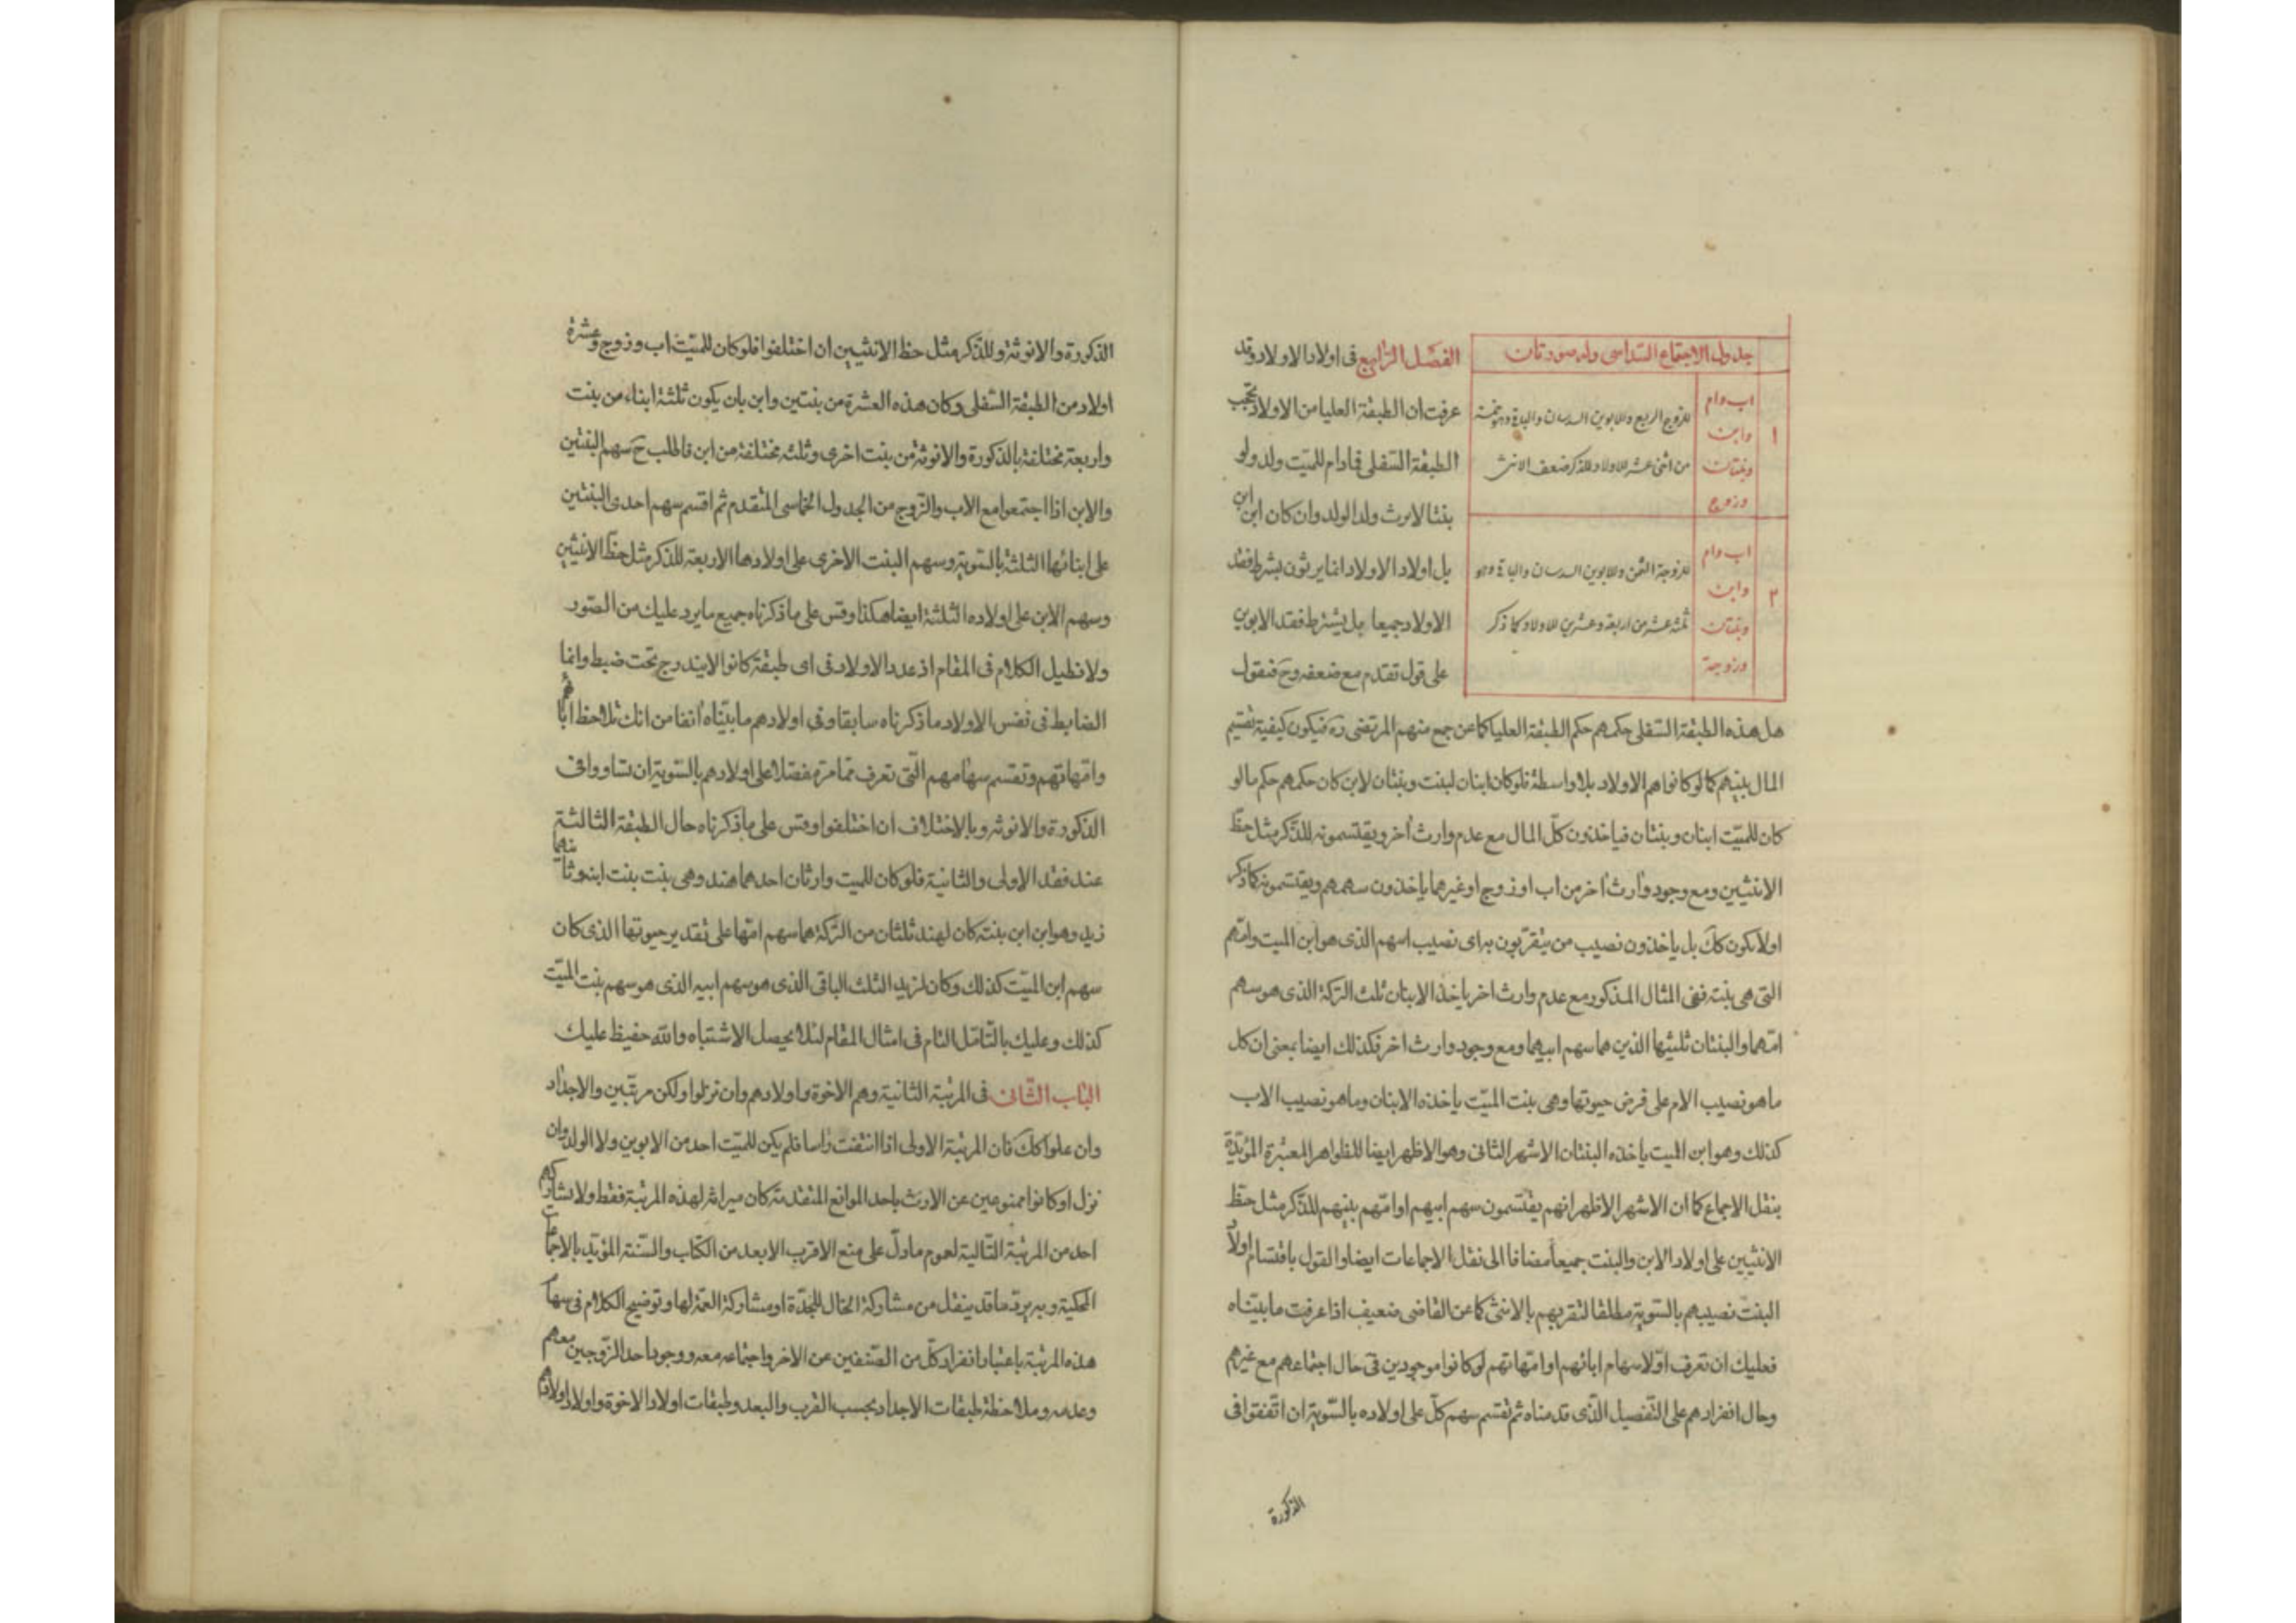 جدول الاجتماع السداسى وله صورتان
١
اب وام
وابن
وبنتان
وزوج
للزوج الربع وللابوين السدسان والباقى وهو خمسة
من اثنى عشر للاولاد للذكر ضعف الانثى
٢
اب وام
وابن
وبنتان
وزوجة
للزوجة الثمن وللابوين السدسان والباقى وهو
ثلثة عشر من اربعة وعشرين للاولاد كما ذكر
الفصل الرابع فى اولاد الاولاد وقد
عرفت ان الطبقة العليا من الاولاد تحجب
الطبقة السفلى فمادام للميّت ولد ولو
بنتا لا يرث ولد الولد وان كان ابن ابن
بل اولاد الاولاد انما يرثون بشرط فقد
الاولاد جميعا بل يشترط فقد الابوين
على قول تقدم مع ضعفه وح فنقول
هل هذه الطبقة السفلى حكمهم حكم الطبقة العليا كما عن جمع منهم المرتضى ره فيكون كيفية تقسيم
المال بينهم كما لو كانوا هم الاولاد بلا واسطة فلو كان ابنان لبنت وبنتان لابن كان حكمهم حكم ما لو
كان للميّت ابنان وبنتان فياخذون كلّ المال مع عدم وارث آخر ويقتسمونه للذّكر مثل حظّ
الانثيين ومع وجود وارث آخر من اب او زوج او غيرهما ياخذون سهمهم ويقتسمونه كما ذكر
او لا يكون كك بل ياخذون نصيب من يتقرّبون به اى نصيب ابيهم الذى هو ابن الميت وامّهم
التى هى بنته ففى المثال المذكور مع عدم وارث اخر ياخذ الابنان ثلث التركة الذى هو سهم
امّهما والبنتان ثلثيها الذين هما سهم ابيهما ومع وجود وارث اخر فكذلك ايضا بمعنى ان كل
ما هو نصيب الام على فرض حيوتها وهى بنت الميّت ياخذه الابنان وما هو نصيب الاب
كذلك وهو ابن الميت ياخذه البنتان الاشهر الثانى وهو الاظهر ايضا للظواهر المعتبرة المؤيّدة
بنقل الاجماع كما ان الاشهر الاظهر انهم يقتسمون سهم ابيهم او امّهم بينهم للذّكر مثل حظّ
الانثيين على اولاد الابن والبنت جميعاً مضافا الى نقل الاجماعات ايضا والقول باقتسام اولاد
البنت نصيبهم بالسّوية مطلقا لتقربهم بالانثى كما عن القاضى ضعيف اذا عرفت ما بيّناه
فعليك ان تعرف اوّلا سهام ابائهم او امّهاتهم لو كانوا موجودين فى حال اجتماعهم مع غيرهم
وحال انفرادهم على التّفصيل الّذى قدمناه ثم تقسم سهم كلّ على اولاده بالسّوية ان اتّفقوا فى
الذكورة
الذكورة والانوثة وللذّكر مثل حظ الانثيين ان اختلفوا فلو كان للميّت اب وزوج وعشرة
اولاد من الطبقة السّفلى وكان هذه العشرة من بنتين وابن بان يكون ثلثة ابناء من بنت
واربعة مختلفة بالذكورة والانوثة من بنت اخرى وثلثه مختلفة من ابن فاطلب ح سهم البنتين
والابن اذا اجتمعوا مع الاب والزّوج من الجدول الخماسى المتقدم ثم اقسم سهم احدى البنتين
على ابنائها الثلثة بالسّوية وسهم البنت الاخرى على اولادها الاربعة للذكر مثل حظّ الانثيين
وسهم الابن على اولاده الثلثة ايضا هكذا وقس على ما ذكرناه جميع ما يرد عليك من الصّور
ولا نطيل الكلام فى المقام اذ عدد الاولاد فى اى طبقة كانوا لا يندرج تحت ضبط وانما
الضابط فى نفس الاولاد ما ذكرناه سابقا وفى اولادهم ما بيّناه آنفا من انك تلاحظ اباءهم
وامّهاتهم وتقسم سهامهم الّتى تعرف ممّا مرّ مفصّلا على اولادهم بالسّوية ان تساووا فى
الذكورة والانوثه وبالاختلاف ان اختلفوا وقس على ما ذكرناه حال الطبقة الثالثة
عند فقد الاولى والثانية فلو كان للميت وارثان احدهما هند وهى بنت بنت ابنه وثانيهما
زيد وهو ابن ابن بنته كان لهند ثلثان من التركة هما سهم امّها على تقدير حيوتها الذى كان
سهم ابن الميّت كذلك وكان لزيد الثلث الباقى الذى هو سهم ابيه الذى هو سهم بنت الميّت
كذلك وعليك بالتّامّل التام فى امثال المقام لئلا يحصل الاشتباه والله حفيظ عليك
الباب الثّانى فى المرتبة الثانية وهم الاخوة واولادهم وان نزلوا ولكن مرتّبين والاجداد
وان علوا كك فان المرتبة الاولى اذا انتفت راسا فلم يكن للميّت احد من الابوين ولا الولد وان
نزل او كانوا ممنوعين عن الارث باحد الموانع المتقدّمة كان ميراثه لهذه المرتبة فقط ولا يشاركهم
احد من المرتبة التّالية لعموم ما دلّ على منع الاقرب الابعد من الكتاب والسّنة المؤيّد بالاجماعات
المحكية وبه يردّ ما قد ينقل من مشاركة الخال للجدّة او مشاركة العمّة لها وتوضيح الكلام فى سهام
هذه المرتبة باعتبار انفراد كلّ من الصّنفين عن الاخر واجتماعه معه ووجود احد الزّوجين معهم
وعدمه وملاحظة طبقات الاجداد بحسب القرب والبعد وطبقات اولاد الاخوة واولاد اولادهم